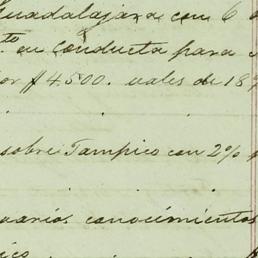 Guadalajara con 6
to en conducta para
or $4.500. vales de 18
sobre Tampico con 2%
varios conocimientos
ico